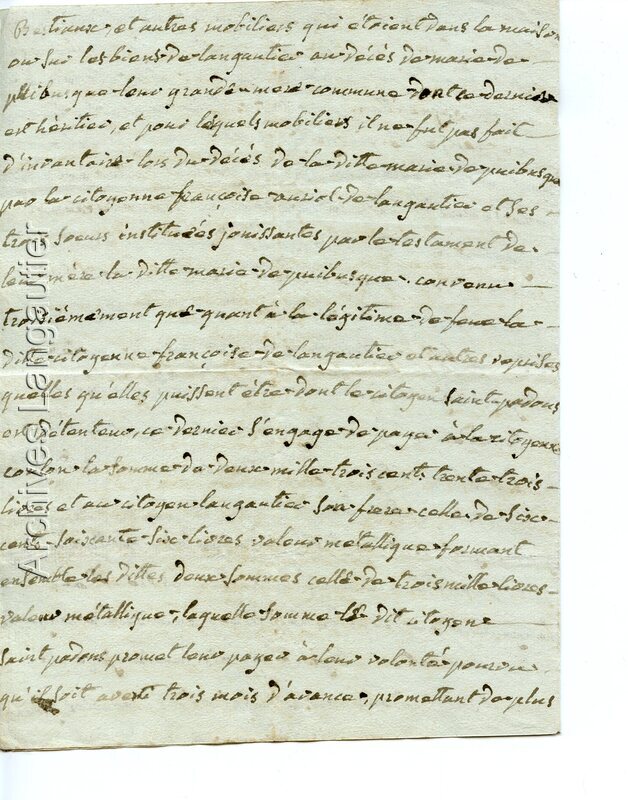 Bestiaux, et autres mobiliers qui étoient dans la maison
ou sur les biens de langautier au décés de marie de
puibusque leur grande mere commune dont ce dernier
est héritier, et pour lequels mobiliers il ne fut pas fait
d'inventaire lors du décés de la ditte marie de puibusque
par la citoyenne françoise auriol de langautier et ses
trois soeurs instituées jouissantes par le testament de
leur mére la ditte marie de puibusque. convenu
troisiémement que quant à la légitime de feue la
ditte citoyenne françoise de langautier et autres reprises
quelles qu'elles puissent être dont le citoyen saint padous
en détenteur, ce dernier s'engage de payer à la citoyenne
coulon la somme de deux mille trois cents trente trois
livres et au citoyen langautier son frere celle de six
cents soixante six livres valeur métallique formant
ensemble les dittes deux sommes celle de trois mille livres
valeur métallique, laquelle somme le dit citoyen
saint padous promet leur payer à leur volonté pourvu
qu'il soit averti trois mois d'avance, promettant de plus
Archives Langautier